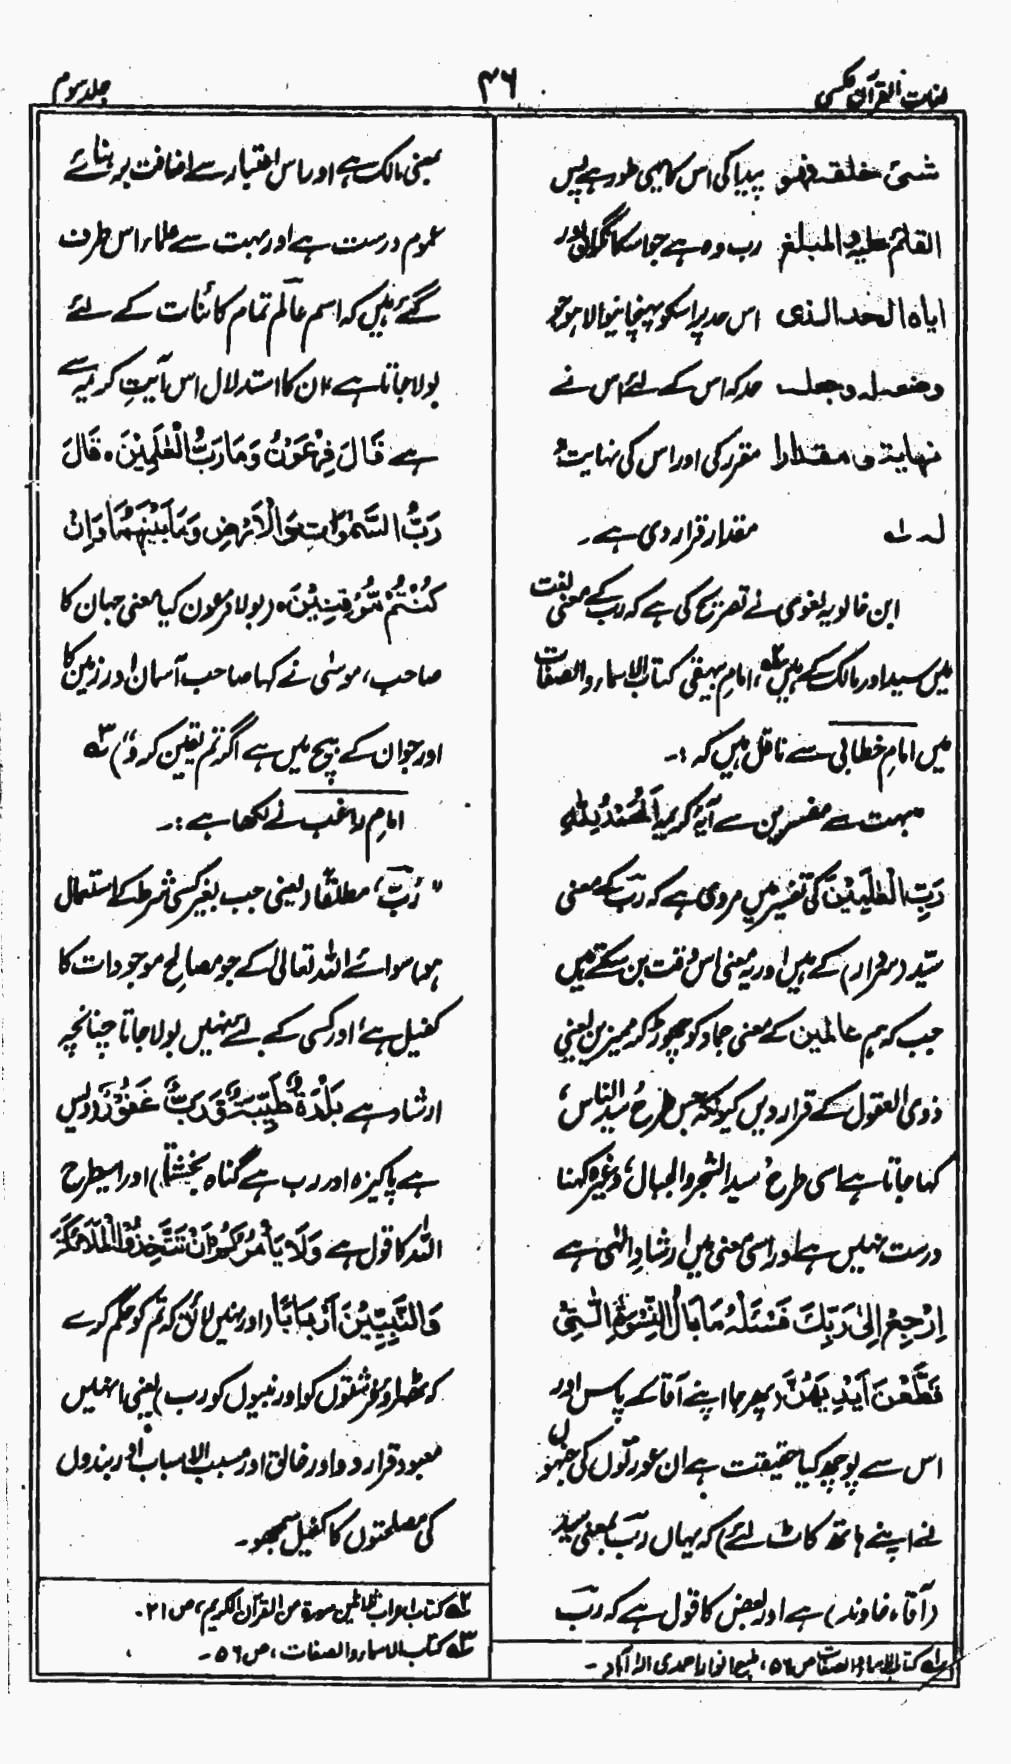 لغات القرآن عکسی
۴۶
جلد سوم
شیئ خلقہ فھو پیدا کی اس کا یہی طور ہے پس
القائم علیہ والمبلغ رب وہ ہے جو اسکا نگراں اور
ایاہ الحد الذی اس حد پر اسکو پہنچانیوالا ہو جو
وضعہ لہ وجعلہ حد کہ اس کے لئے اس نے
نھایة و مقدارا مقرر کی اور اس کی نہایت و
لہ مقدار قرار دی ہے۔
ابن خالویہ لغوی نے تصریح کی ہے کہ رب کے معنی لغت
میں سید اور مالک کے ہیں، امام بیہقی کتاب الاسماء والصفات
میں امام خطابی سے ناقل ہیں کہ :۔
بہت سے مفسرین سے آیۂ کریمہ اَلْحَمْدُ لِلّٰہِ
رَبِّ الْعٰلَمِیْنَ کی تفسیر میں مروی ہے کہ رَبّ کے معنی
سیّد (سردار) کے ہیں اور یہ معنی اس وقت بن سکتے ہیں
جب کہ ہم عالمین کے معنی جماد کو چھوڑ کر ممیزین یعنی
ذوی العقول کے قرار دیں کیونکہ جس طرح سید الناس،
کہا جاتا ہے اسی طرح سید الشجر والجبال، وغیرہ کہنا
درست نہیں ہے اور اسی معنی میں ارشادِ الٰہی ہے
اِرْجِعْ اِلٰی رَبِّکَ فَسْئَلْہُ مَا بَالُ النِّسْوَۃِ الّٰتِیْ
قَطَّعْنَ اَیْدِیَھُنَّ (پھر جا اپنے آقا کے پاس اور
اس سے پوچھ کیا حقیقت ہے ان عورتوں کی جنہوں
نے اپنے ہاتھ کاٹ لئے) کہ یہاں رَبّ بمعنی سید
(آقا، خاوند) ہے اور بعض کا قول ہے کہ رَبّ
۱ کتاب الاسماء والصفات ص ۵۶، طبع انوار احمدی الہ آباد ۔
بمعنی مالک ہے اور اس اعتبار سے اضافت بر بنائے
عموم درست ہے اور بہت سے علماء اس طرف
گئے ہیں کہ اسم عالَم تمام کائنات کے لئے
بولا جاتا ہے، ان کا استدلال اس آیتِ کریمہ سے
ہے قَالَ فِرْعَوْنُ وَمَا رَبُّ الْعٰلَمِیْنَ، قَالَ
رَبُّ السَّمٰوٰتِ وَالْاَرْضِ وَمَا بَیْنَھُمَا اِنْ
کُنْتُمْ مُّوْقِنِیْنَ، (بولا فرعون کیا معنی جہان کا
صاحب، موسٰی نے کہا صاحب آسمان اور زمین کا
اور جو ان کے بیچ میں ہے اگر تم یقین کرو") ۳
امام راغب نے لکھا ہے :۔
"رَبّ، مطلقًا (یعنی جب بغیر کسی شرط کے استعمال
ہو) سوائے اللہ تعالیٰ کے جو مصالح موجودات کا
کفیل ہے، اور کسی کے لئے نہیں بولا جاتا چنانچہ
ارشاد ہے بَلْدَۃٌ طَیِّبَۃٌ وَّرَبٌّ غَفُوْرٌ (دیس
ہے پاکیزہ اور رب ہے گناہ بخشتا) اور اسیطرح
اللہ کا قول ہے وَلَا یَاْمُرَکُمْ اَنْ تَتَّخِذُوا الْمَلٰٓئِکَۃَ
وَالنَّبِیّٖنَ اَرْبَابًا (اور نہیں لائق کہ تم کو حکم کرے
کہ ٹھہراؤ فرشتوں کو اور نبیوں کو رب) یعنی انہیں
معبود قرار دو اور خالق اور مسبب الاسباب اور بندوں
کی مصلحتوں کا کفیل سمجھو۔
۲ کتاب اعراب ثلاثین سورۃ من القرآن الکریم، ص ۲۱۔
۳ کتاب الاسماء والصفات، ص ۵۶۔